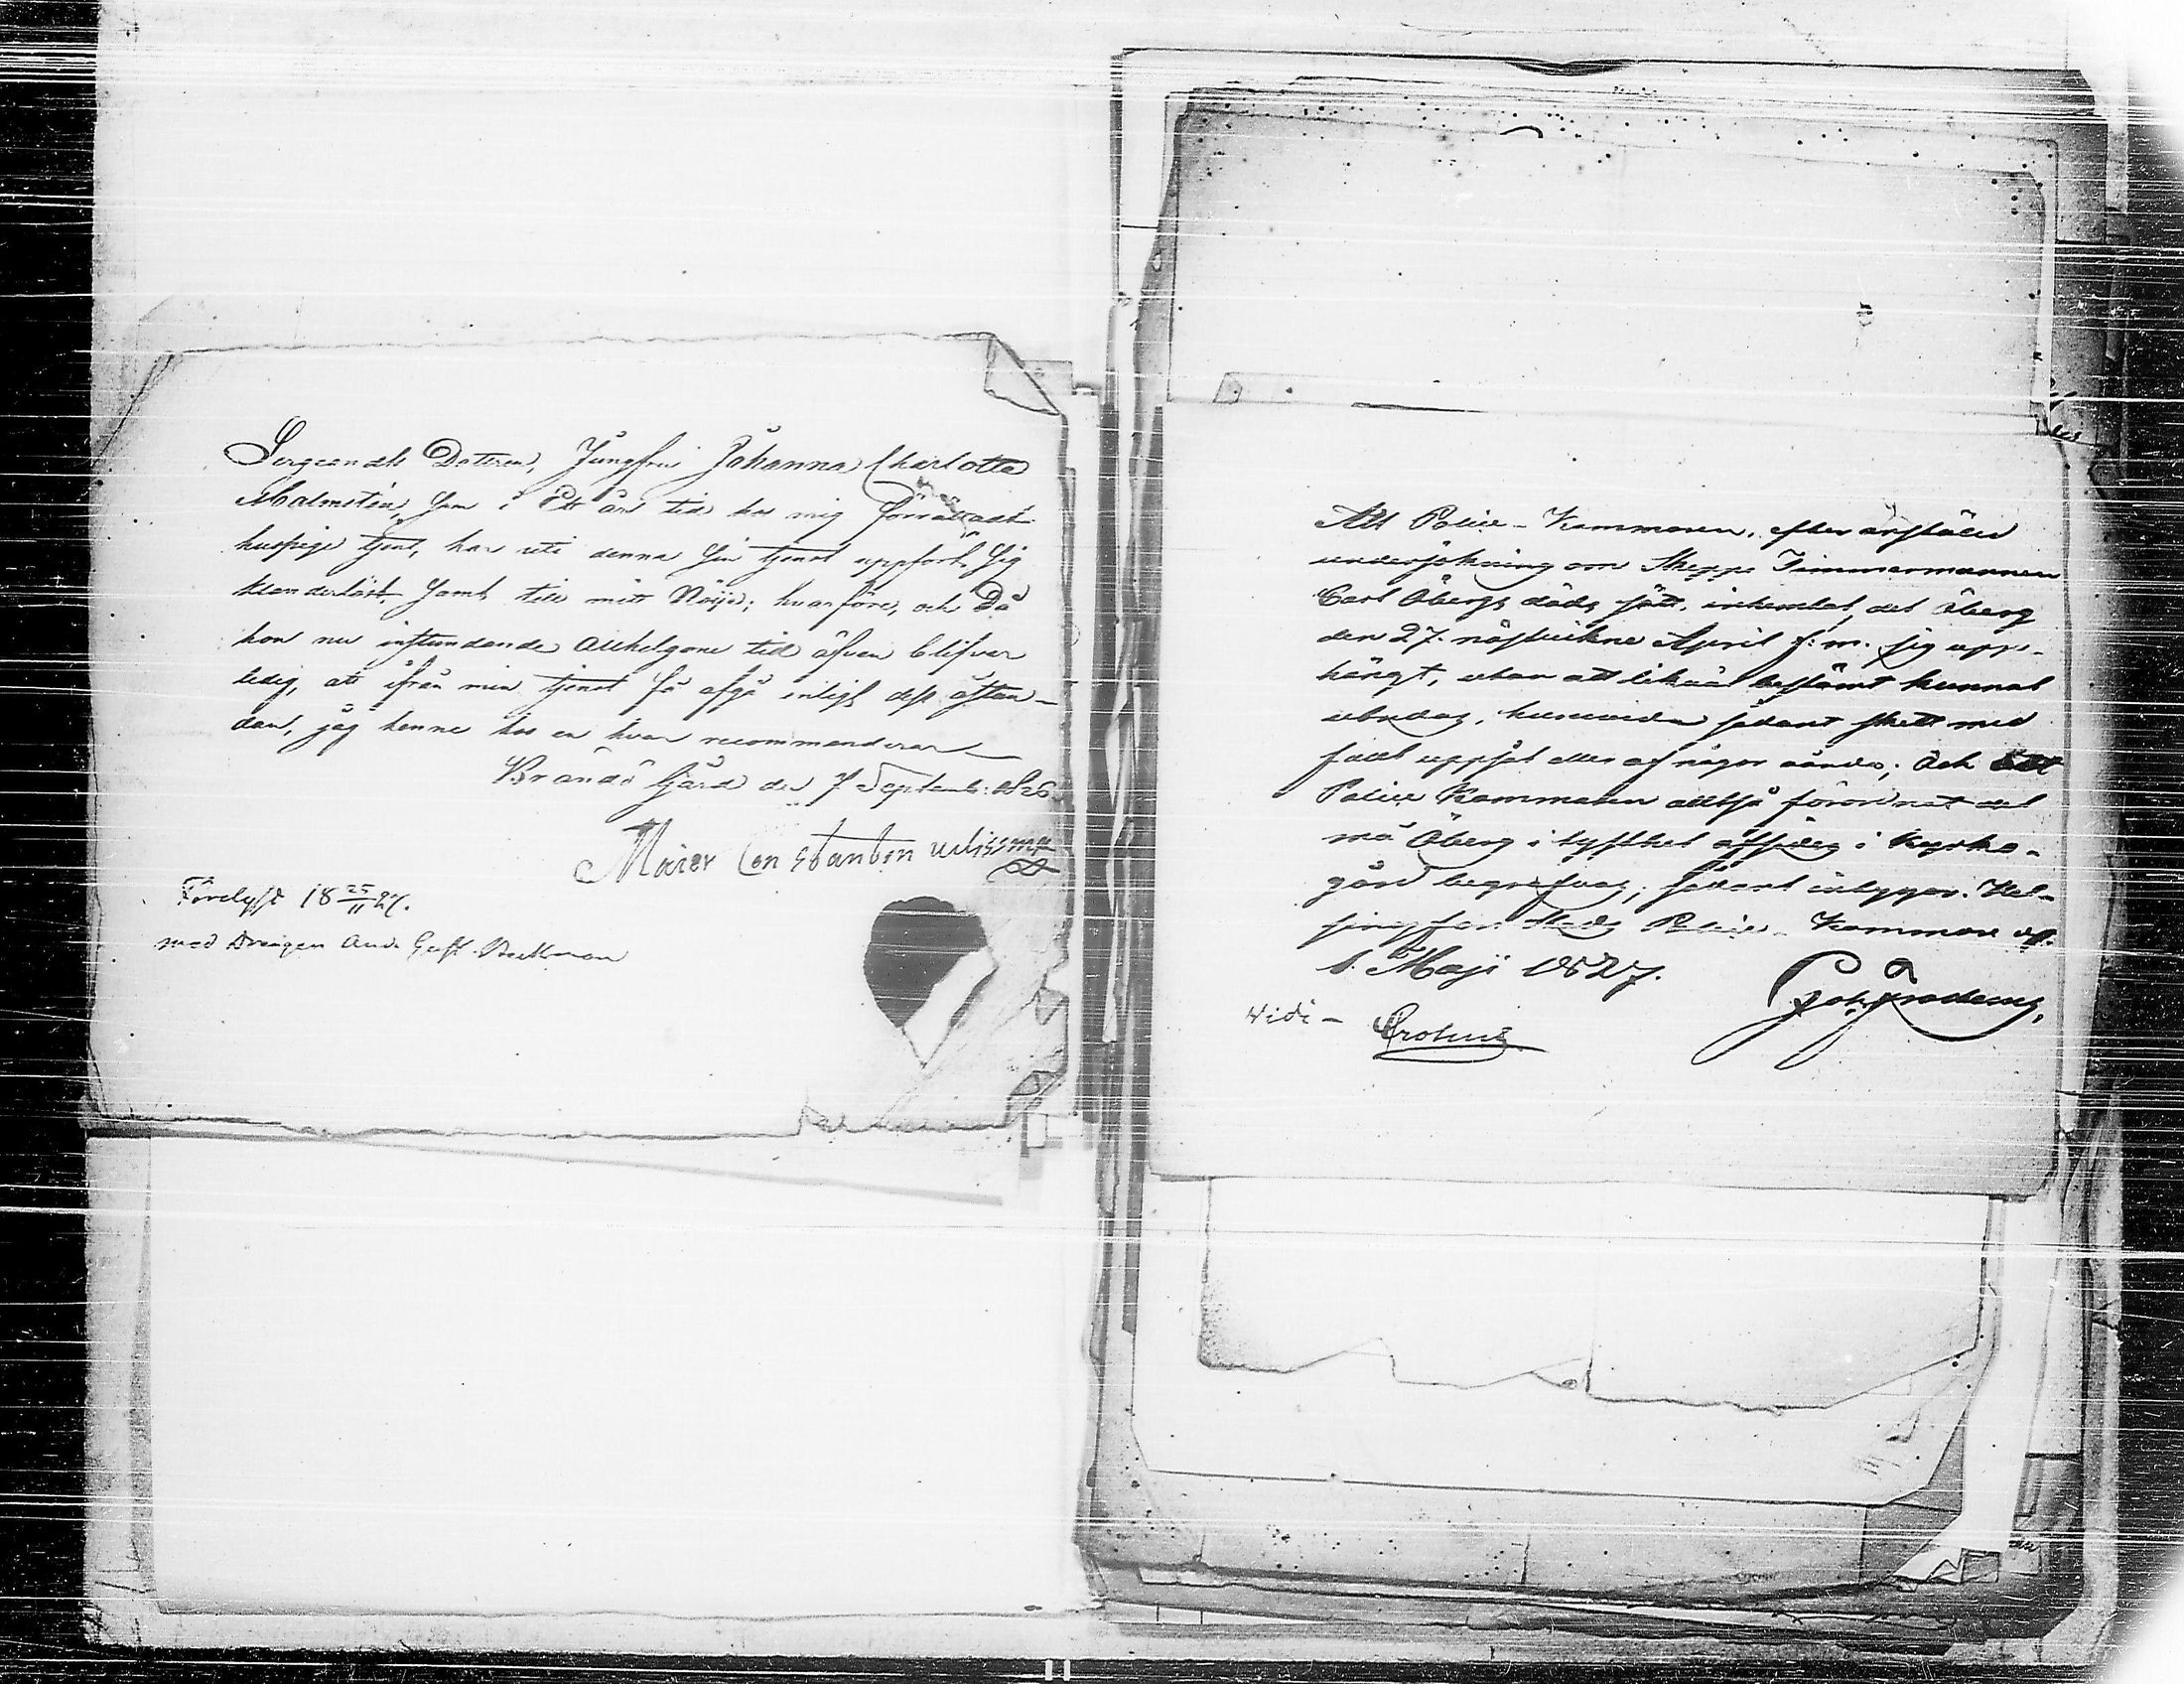 Sergeants Dottren, Jungfru Johanna Charlotta
Malmsten, som i Ett års tid hos mig förrättadt
huspige tjenst, har uti denna sin tjenst uppfört sig
klanderlöst, samt till mitt Nöije; hvarföre, och Då
hon nu instundande Allhelgone tid äfven blifver
ledig, att ifrån min tjenst få afgå enligt dess åstun-
dan, jag henne hos en hvar recommenderar
Brändö Gård den 7 Septemb: 1826
Maier Constantin
Förelyst 18 25/11 27.
med Drängen And. Gust. Beckman
Att Police-Kammaren, efter anstäld
undersökning om Skepps Timmermannen
Carl Öbergs döds sätt, inhemtat, det Öberg
den 27. nästvikne April f:m. sig upp-
hängt, utan att likväl bestämt kunnat
utredas, huruvida sådant skett med
fullt uppsåt eller af någon vånda; Och
Police Kammaren alltså förordnat det
må Öberg i tysthet afsides i kyrko-
gård begrafvas; sådant intygar. Hel-
singfors Stads Police-Kammare d.
1. Maji 1827.
Vidi-